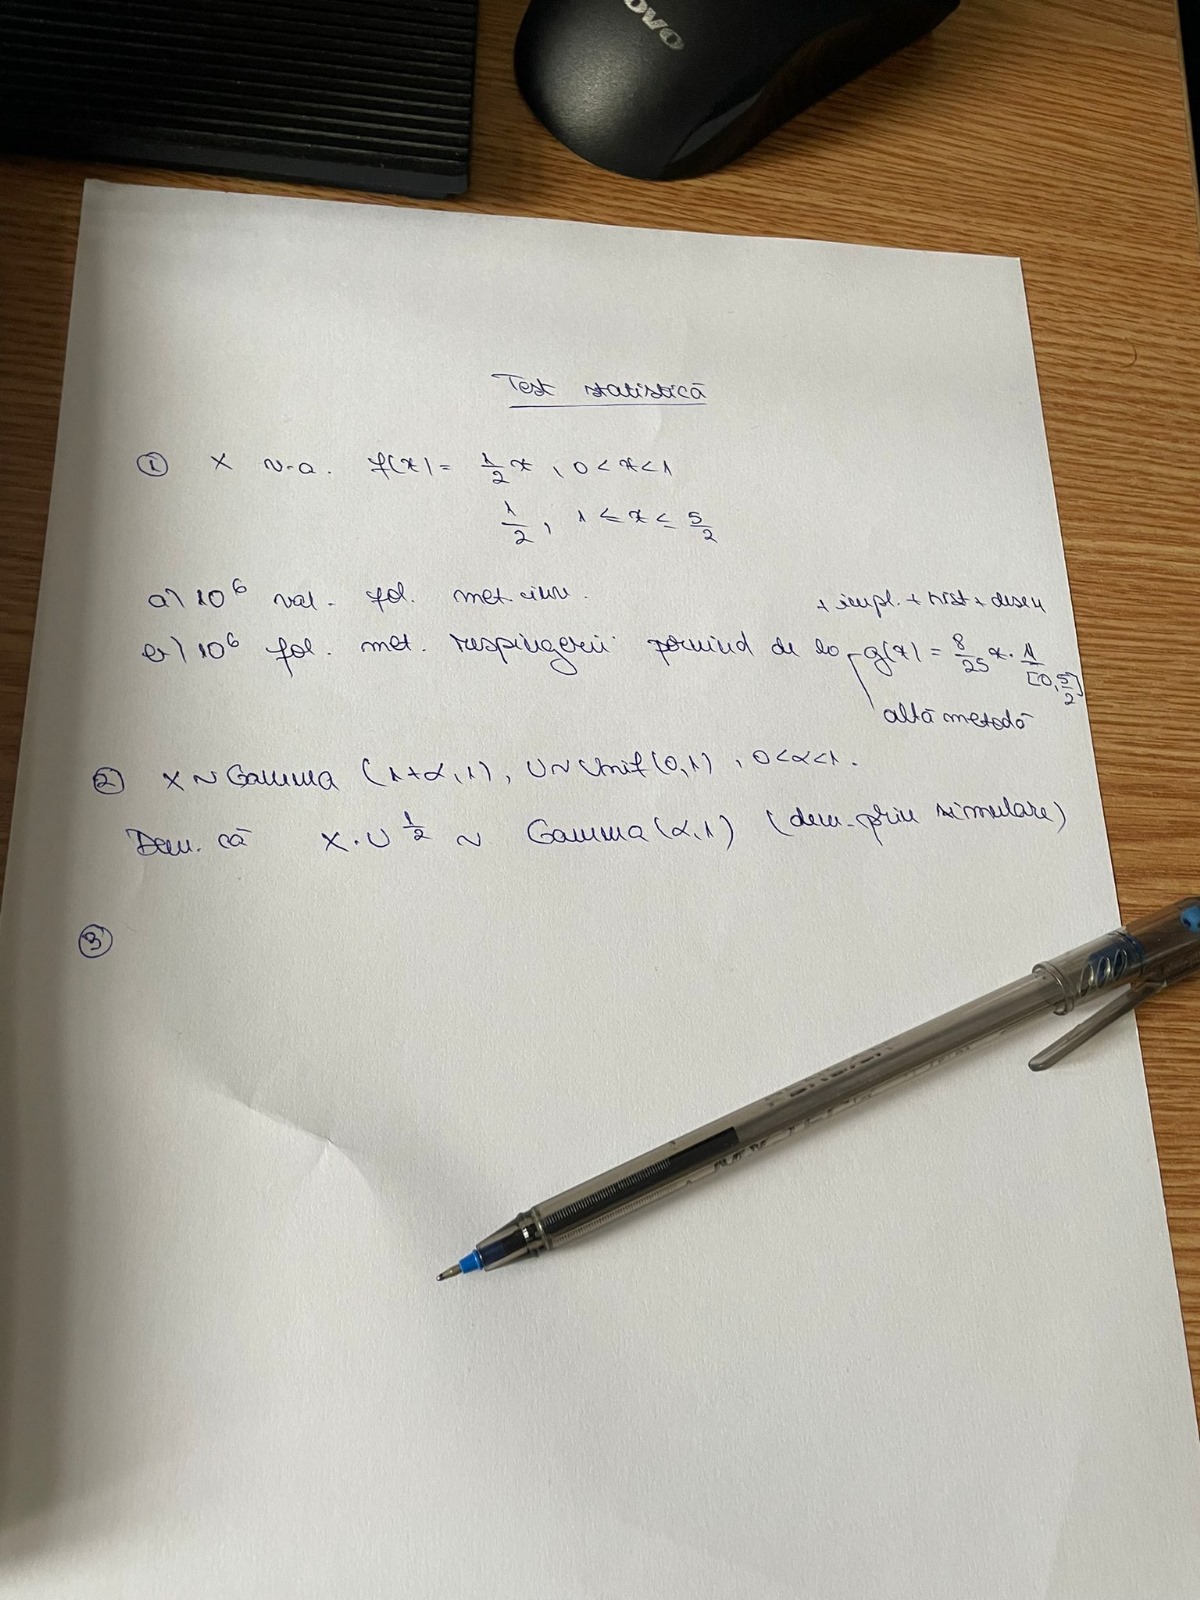 ovo
Test statistică
① X v.a. f(x) = 1/2 x , 0 < x < 1
1/2 , 1 ≤ x ≤ 5/2
a) 10^6 val. fol. met. inv.
+ impl. + hist + desen
b) 10^6 fol. met. respingerii pornind de la g(x) = 8/25 x · 1 [0, 5/2]
altă metodă
② X ~ Gamma (1+α, 1), U ~ Unif(0,1) , 0<α<1.
Dem. că X · U^1/2 ~ Gamma(α,1) (dem. prin simulare)
③